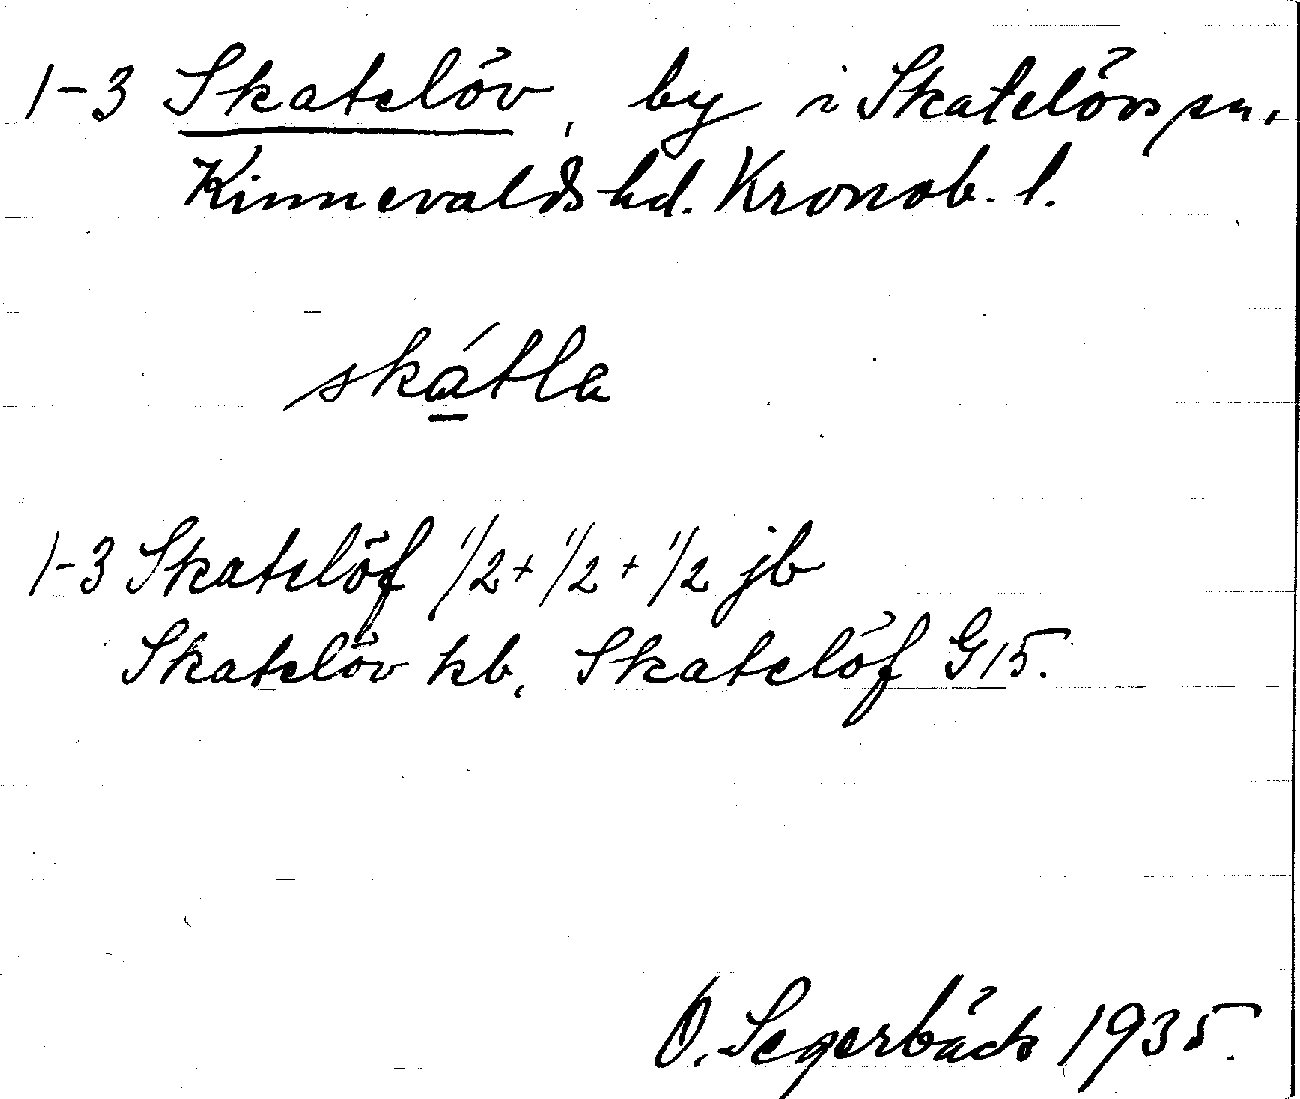 1-3 Skatelöv, by i Skatelövs sn.
Kinnevalds hd. Kronob. l.
ská̱tla
1-3 Skatelöf 1/2 + 1/2 + 1/2 jb
Skatelöv kb. Skatelöf G15.
O. Segerbäck 1935.